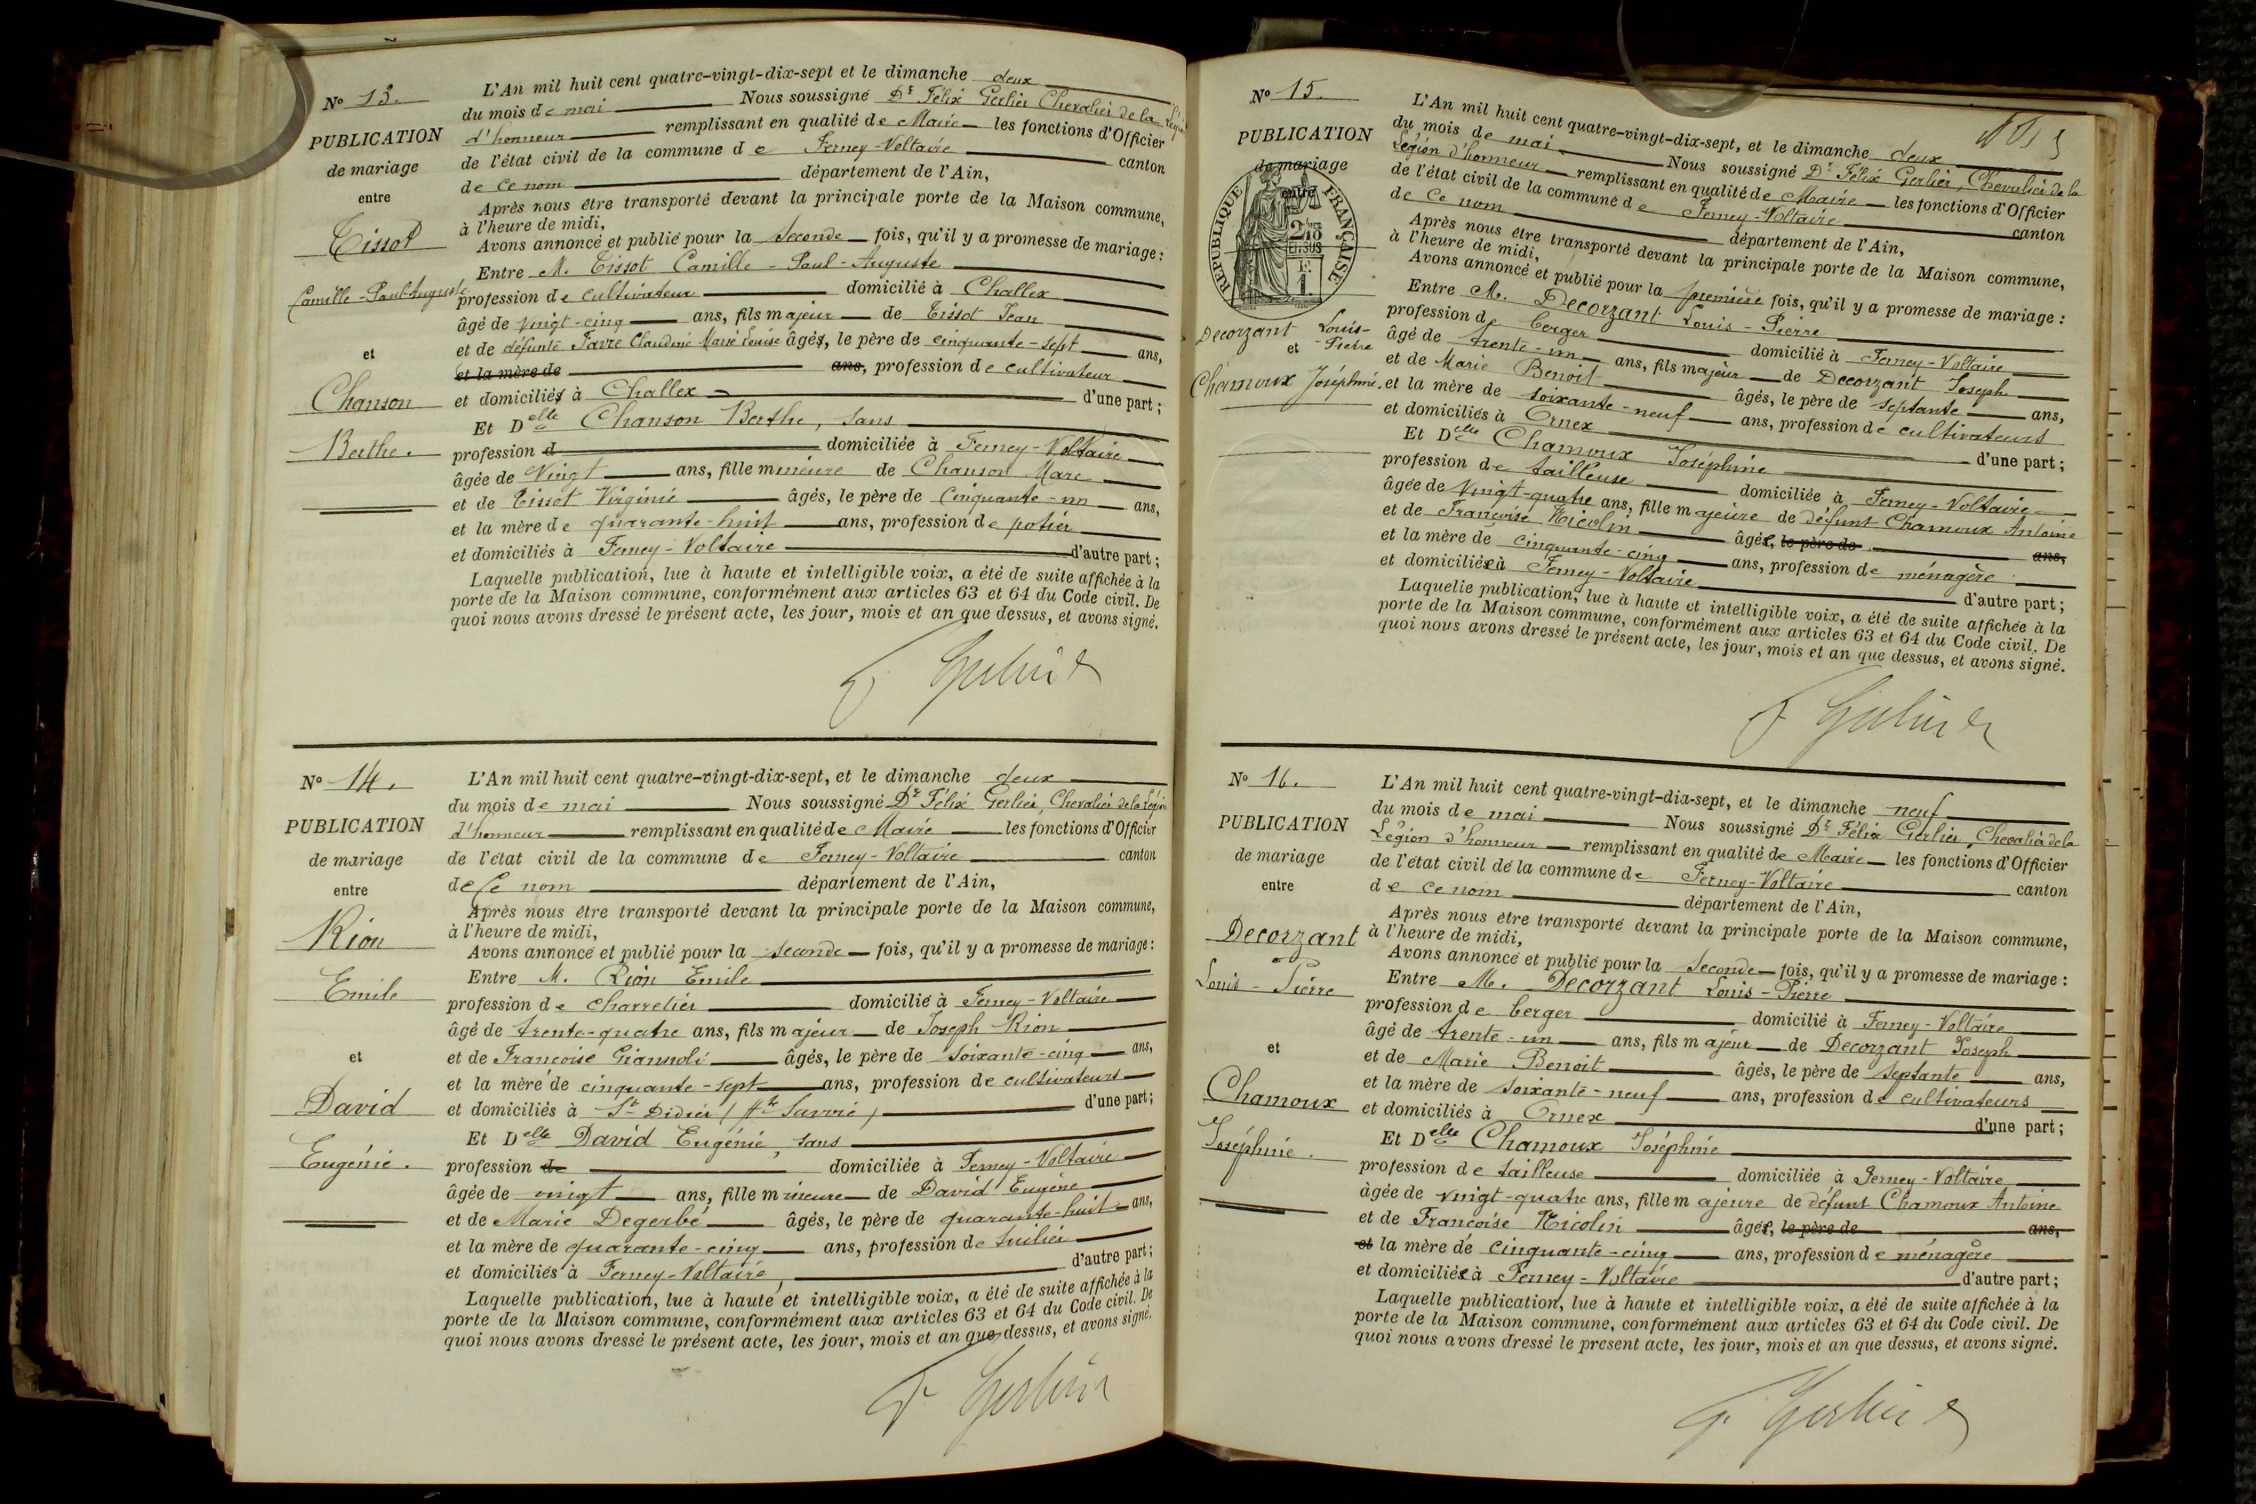 N° 13.
PUBLICATION
de mariage
entre
Tissot
Camille-Paul-Auguste
et
Chanson
Berthe.
L'An mil huit cent quatre-vingt-dix-sept et le dimanche deux
du mois de mai Nous soussigné Dr Félix Gerlier Chevalier de la Légion
d'honneur remplissant en qualité de Maire les fonctions d'Officier
de l'état civil de la commune de Ferney-Voltaire canton
de ce nom département de l'Ain,
Après nous être transporté devant la principale porte de la Maison commune,
à l'heure de midi,
Avons annoncé et publié pour la seconde fois, qu'il y a promesse de mariage :
Entre M. Tissot Camille-Paul-Auguste
profession de cultivateur domicilié à Challex
âgé de vingt-cinq ans, fils majeur de Tissot Jean
et de défunte Favre Claudine Marie Louise âgés, le père de cinquante-sept ans,
et la mère de ans, profession de cultivateur
et domiciliés à Challex d'une part ;
Et Delle Chanson Berthe, sans
profession d domiciliée à Ferney-Voltaire
âgée de Vingt ans, fille mineure de Chanson Marc
et de Tissot Virginie âgés, le père de Cinquante-un ans,
et la mère de quarante-huit ans, profession de potier
et domiciliés à Ferney-Voltaire d'autre part ;
Laquelle publication, lue à haute et intelligible voix, a été de suite affichée à la
porte de la Maison commune, conformément aux articles 63 et 64 du Code civil. De
quoi nous avons dressé le présent acte, les jour, mois et an que dessus, et avons signé.
F. Gerlier
N° 14.
PUBLICATION
de mariage
entre
Rion
Emile
et
David
Eugénie.
L'An mil huit cent quatre-vingt-dix-sept, et le dimanche deux
du mois de mai Nous soussigné Dr Félix Gerlier, Chevalier de la Légion
d'honneur remplissant en qualité de Maire les fonctions d'Officier
de l'état civil de la commune de Ferney-Voltaire canton
de Ce nom département de l'Ain,
Après nous être transporté devant la principale porte de la Maison commune,
à l'heure de midi,
Avons annoncé et publié pour la seconde fois, qu'il y a promesse de mariage :
Entre M. Rion Emile
profession de charretier domicilié à Ferney-Voltaire
âgé de trente-quatre ans, fils majeur de Joseph Rion
et de Françoise âgés, le père de soixante-cinq ans,
et la mère de cinquante-sept ans, profession de cultivateurs
et domiciliés à St Didier (Hte Savoie) d'une part ;
Et Delle David Eugénie, sans
profession de domiciliée à Ferney-Voltaire
âgée de vingt ans, fille mineure de David Eugène
et de Marie Degerbé âgés, le père de quarante-huit ans,
et la mère de quarante-cinq ans, profession de tuilier
et domiciliés à Ferney-Voltaire, d'autre part ;
Laquelle publication, lue à haute et intelligible voix, a été de suite affichée à la
porte de la Maison commune, conformément aux articles 63 et 64 du Code civil. De
quoi nous avons dressé le présent acte, les jour, mois et an que dessus, et avons signé.
F. Gerlier
N° 15.
PUBLICATION
de mariage
entre
RÉPUBLIQUE FRANÇAISE
2/10
EN SUS
Decorzant Louis-
et Pierre
Chamoux Joséphine.
L'An mil huit cent quatre-vingt-dix-sept, et le dimanche deux
du mois de mai Nous soussigné Dr Félix Gerlier, Chevalier de la
Légion d'honneur remplissant en qualité de Maire les fonctions d'Officier
de l'état civil de la commune de Ferney-Voltaire canton
de Ce nom département de l'Ain,
Après nous être transporté devant la principale porte de la Maison commune,
à l'heure de midi,
Avons annoncé et publié pour la première fois, qu'il y a promesse de mariage :
Entre M. Decorzant Louis-Pierre
profession de berger domicilié à Ferney-Voltaire
âgé de trente-un ans, fils majeur de Decorzant Joseph
et de Marie Benoit âgés, le père de septante ans,
et la mère de soixante-neuf ans, profession de cultivateurs
et domiciliés à Ornex d'une part ;
Et Delle Chamoux Joséphine
profession de tailleuse domiciliée à Ferney-Voltaire
âgée de Vingt-quatre ans, fille majeure de défunt Chamoux Antoine
et de Françoise Nicolin âgés, le père de ans,
et la mère de cinquante-cinq ans, profession de ménagère
et domiciliée à Ferney-Voltaire d'autre part ;
Laquelle publication, lue à haute et intelligible voix, a été de suite affichée à la
porte de la Maison commune, conformément aux articles 63 et 64 du Code civil. De
quoi nous avons dressé le présent acte, les jour, mois et an que dessus, et avons signé.
F Gerlier
N° 16.
PUBLICATION
de mariage
entre
Decorzant
Louis-Pierre
et
Chamoux
Joséphine.
L'An mil huit cent quatre-vingt-dix-sept, et le dimanche neuf
du mois de mai Nous soussigné Dr Félix Gerlier, Chevalier de la
Légion d'honneur remplissant en qualité de Maire les fonctions d'Officier
de l'état civil de la commune de Ferney-Voltaire canton
de ce nom département de l'Ain,
Après nous être transporté devant la principale porte de la Maison commune,
à l'heure de midi,
Avons annoncé et publié pour la seconde fois, qu'il y a promesse de mariage :
Entre M. Decorzant Louis-Pierre
profession de berger domicilié à Ferney-Voltaire
âgé de trente-un ans, fils majeur de Decorzant Joseph
et de Marie Benoit âgés, le père de septante ans,
et la mère de soixante-neuf ans, profession de cultivateurs
et domiciliés à Ornex d'une part ;
Et Delle Chamoux Joséphine
profession de tailleuse domiciliée à Ferney-Voltaire
âgée de vingt-quatre ans, fille majeure de défunt Chamoux Antoine
et de Françoise Nicolin âgés, le père de ans,
et la mère de cinquante-cinq ans, profession de ménagère
et domiciliée à Ferney-Voltaire d'autre part ;
Laquelle publication, lue à haute et intelligible voix, a été de suite affichée à la
porte de la Maison commune, conformément aux articles 63 et 64 du Code civil. De
quoi nous avons dressé le présent acte, les jour, mois et an que dessus, et avons signé.
F. Gerlier